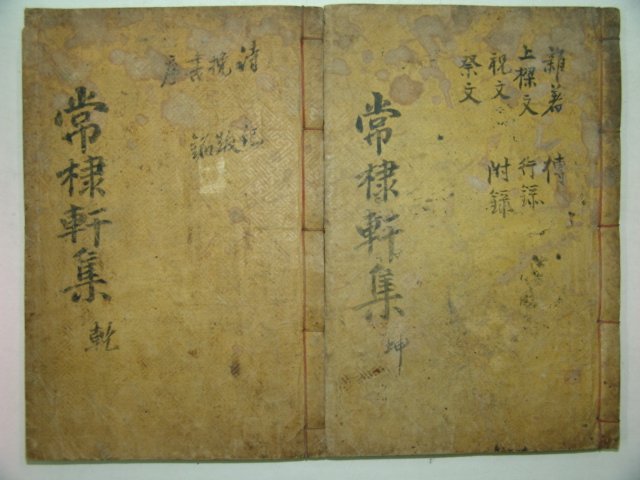 詩 挽 書 序
記 跋 銘
常棣軒集 乾
雜著 傳
上樑文 行錄
祝文 附錄
祭文
常棣軒集 坤